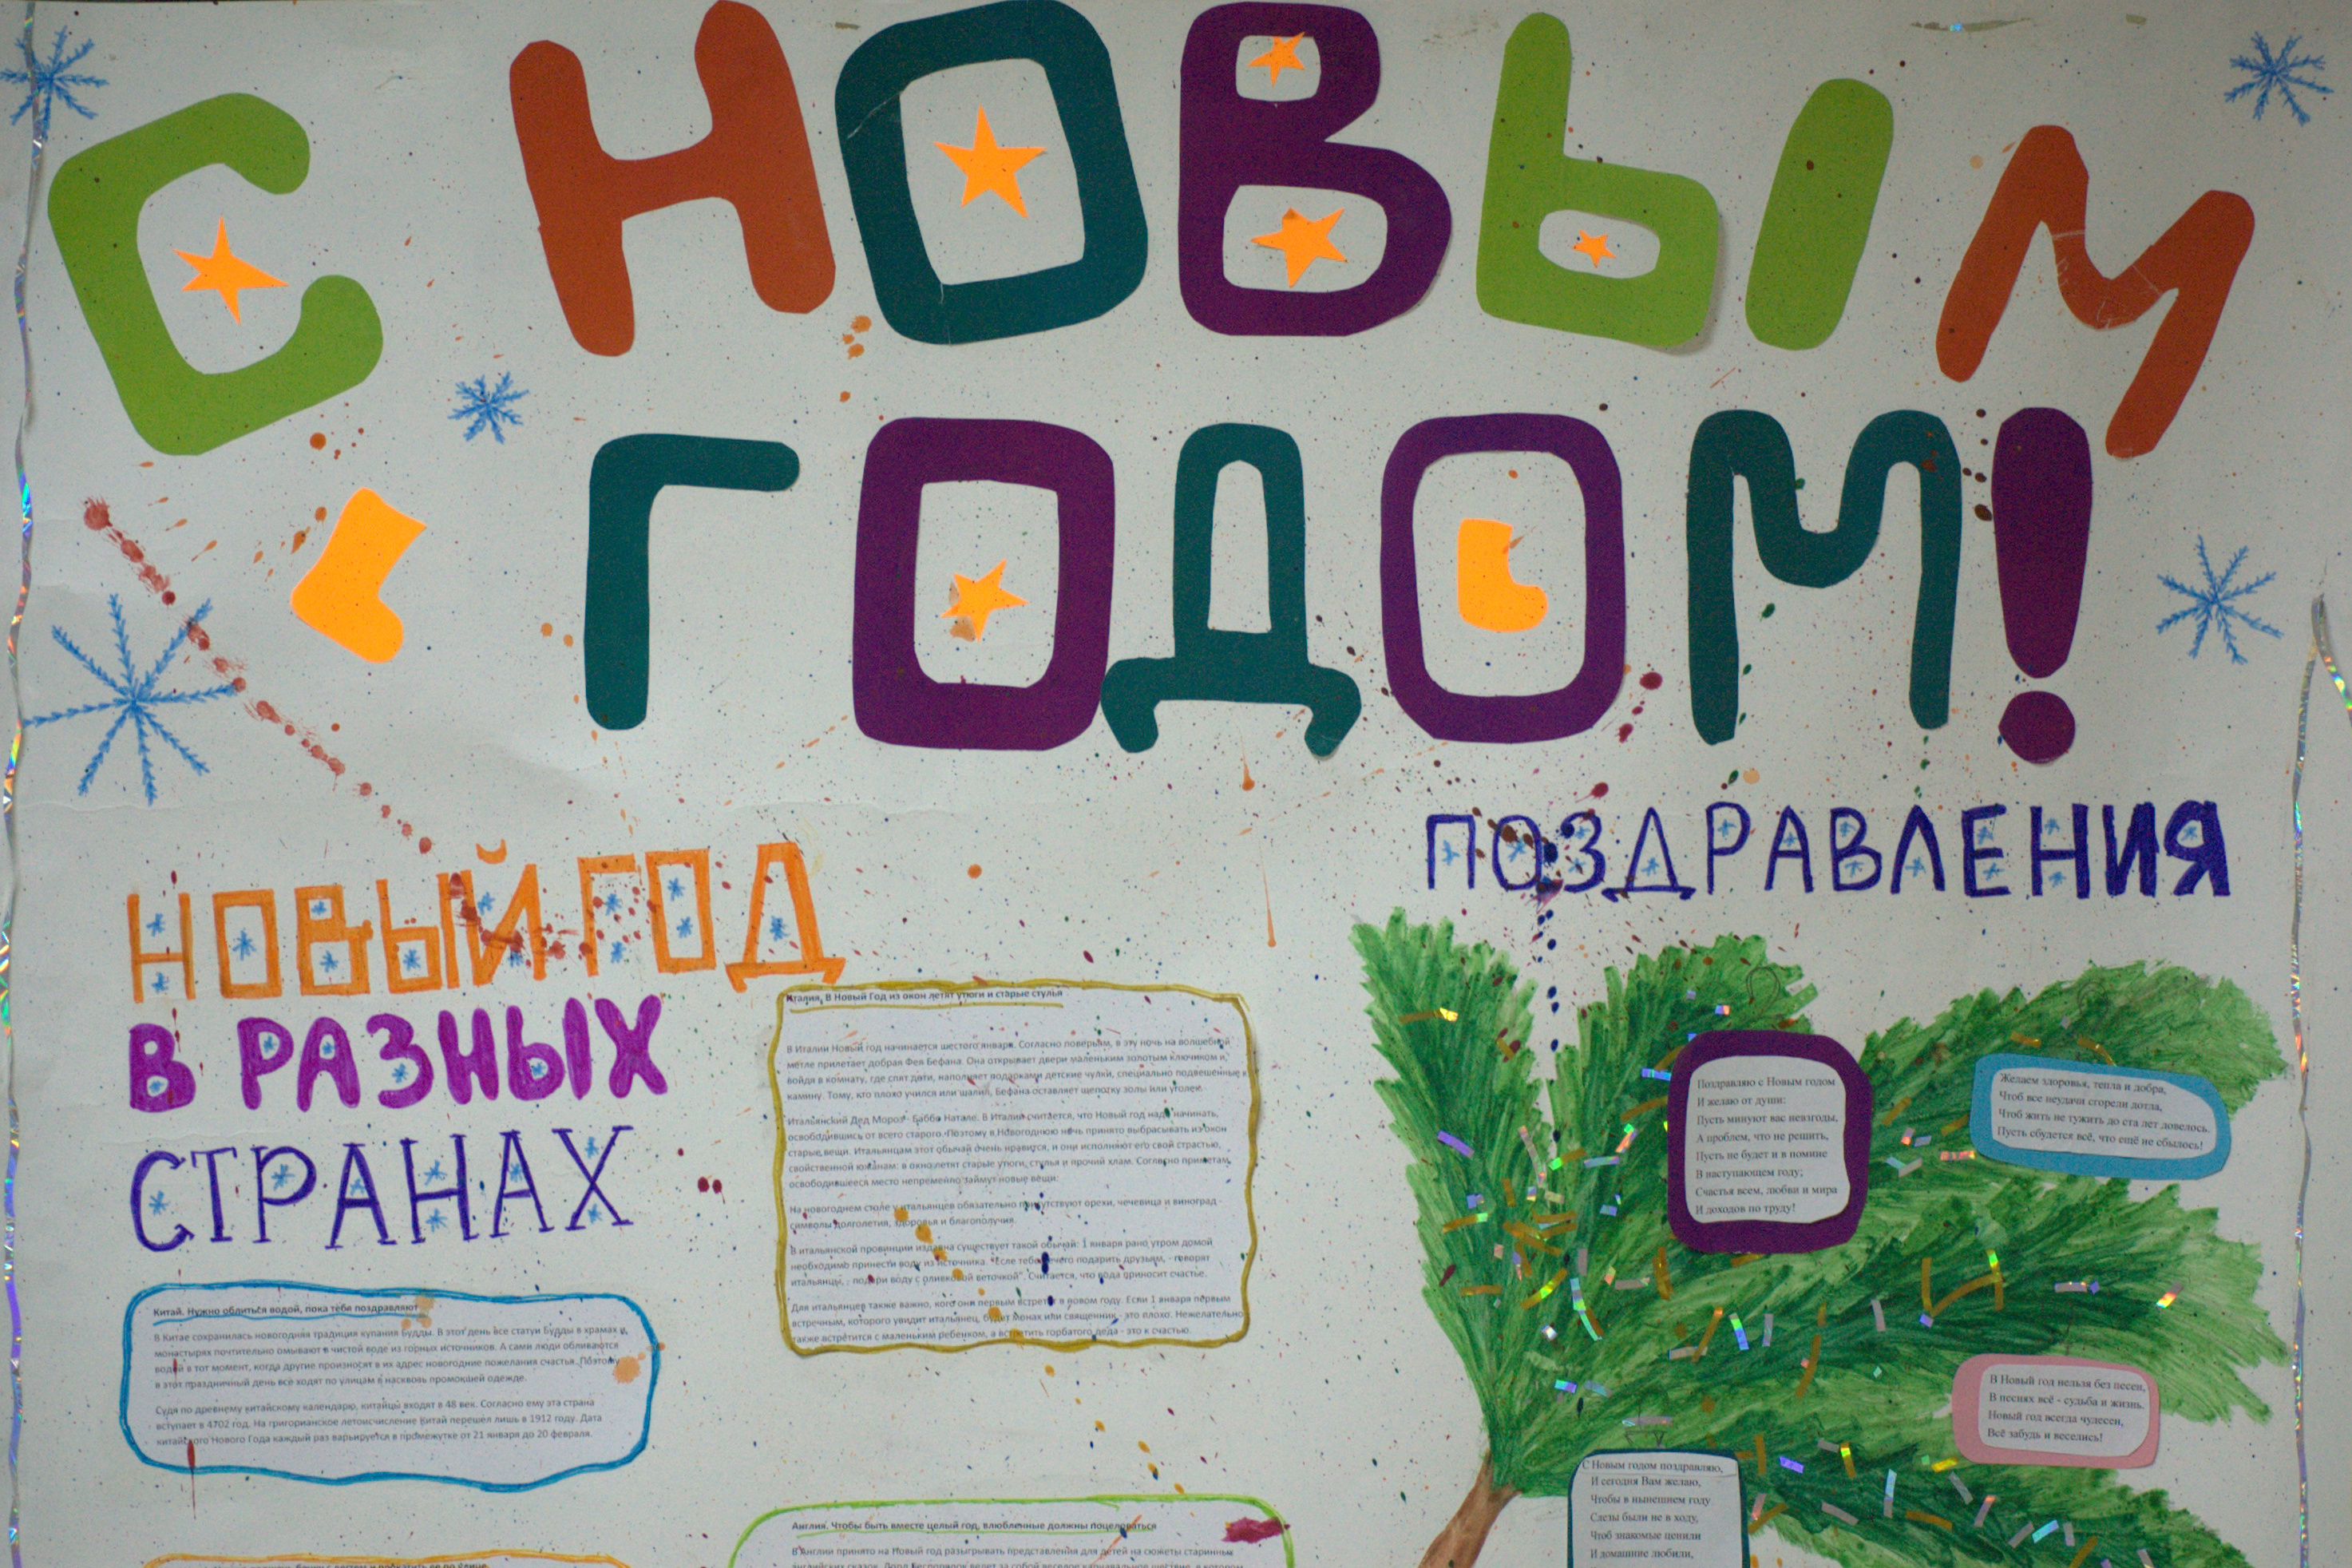 С НОВЫМ
ГОДОМ!
НОВЫЙ ГОД
В РАЗНЫХ
СТРАНАХ
Китай. Нужно облиться водой, пока тебя поздравляют
В Китае сохранилась новогодняя традиция купания Будды. В этот день все статуи Будды в храмах и
монастырях почтительно омывают в чистой воде из горных источников. А сами люди обливаются
водой в тот момент, когда другие произносят в их адрес новогодние пожелания счастья. Поэтому
в этот праздничный день все ходят по улицам в насквозь промокшей одежде.
Судя по древнему китайскому календарю, китайцы входят в 48 век. Согласно ему эта страна
вступает в 4702 год. На григорианское летоисчисление Китай перешел лишь в 1912 году. Дата
китайского Нового Года каждый раз варьируется в промежутке от 21 января до 20 февраля.
Италия. В Новый Год из окон летят утюги и старые стулья
В Италии Новый год начинается шестого января. Согласно поверьям, в эту ночь на волшебной
метле прилетает добрая Фея Бефана. Она открывает двери маленьким золотым ключиком и,
войдя в комнату, где спят дети, наполняет подарками детские чулки, специально подвешенные к
камину. Тому, кто плохо учился или шалил, Бефана оставляет щепотку золы или уголек.
Итальянский Дед Мороз - Баббо Натале. В Италии считается, что Новый год надо начинать,
освободившись от всего старого. Поэтому в Новогоднюю ночь принято выбрасывать из окон
старые вещи. Итальянцам этот обычай очень нравится, и они исполняют его свой страстью,
свойственной южанам: в окно летят старые утюги, стулья и прочий хлам. Согласно приметам,
освободившееся место непременно займут новые вещи.
На новогоднем столе у итальянцев обязательно присутствуют орехи, чечевица и виноград -
символы долголетия, здоровья и благополучия.
В итальянской провинции издавна существует такой обычай: 1 января рано утром домой
необходимо принести воду из источника. "Если тебе нечего подарить друзьям, - говорят
итальянцы, - подари воду с оливковой веточкой". Считается, что вода приносит счастье.
Для итальянцев также важно, кого они первым встретят в новом году. Если 1 января первым
встречным, которого увидит итальянец, будет монах или священник - это плохо. Нежелательно
также встретится с маленьким ребенком, а встретить горбатого деда - это к счастью.
Англия. Чтобы быть вместе целый год, влюбленные должны поцеловаться
В Англии принято на Новый год разыгрывать представления для детей на сюжеты старинных
ПОЗДРАВЛЕНИЯ
Поздравляю с Новым годом
И желаю от души:
Пусть минуют вас невзгоды,
А проблем, что не решить,
Пусть не будет и в помине
В наступающем году;
Счастья всем, любви и мира
И доходов по труду!
Желаем здоровья, тепла и добра,
Чтоб все неудачи сгорели дотла,
Чтоб жить не тужить до ста лет довелось.
Пусть сбудется всё, что ещё не сбылось!
В Новый год нельзя без песен,
В песнях всё - судьба и жизнь.
Новый год всегда чудесен,
Всё забудь и веселись!
С Новым годом поздравляю,
И сегодня Вам желаю,
Чтобы в нынешнем году
Слезы были не в ходу,
Чтоб знакомые ценили
И домашние любили,